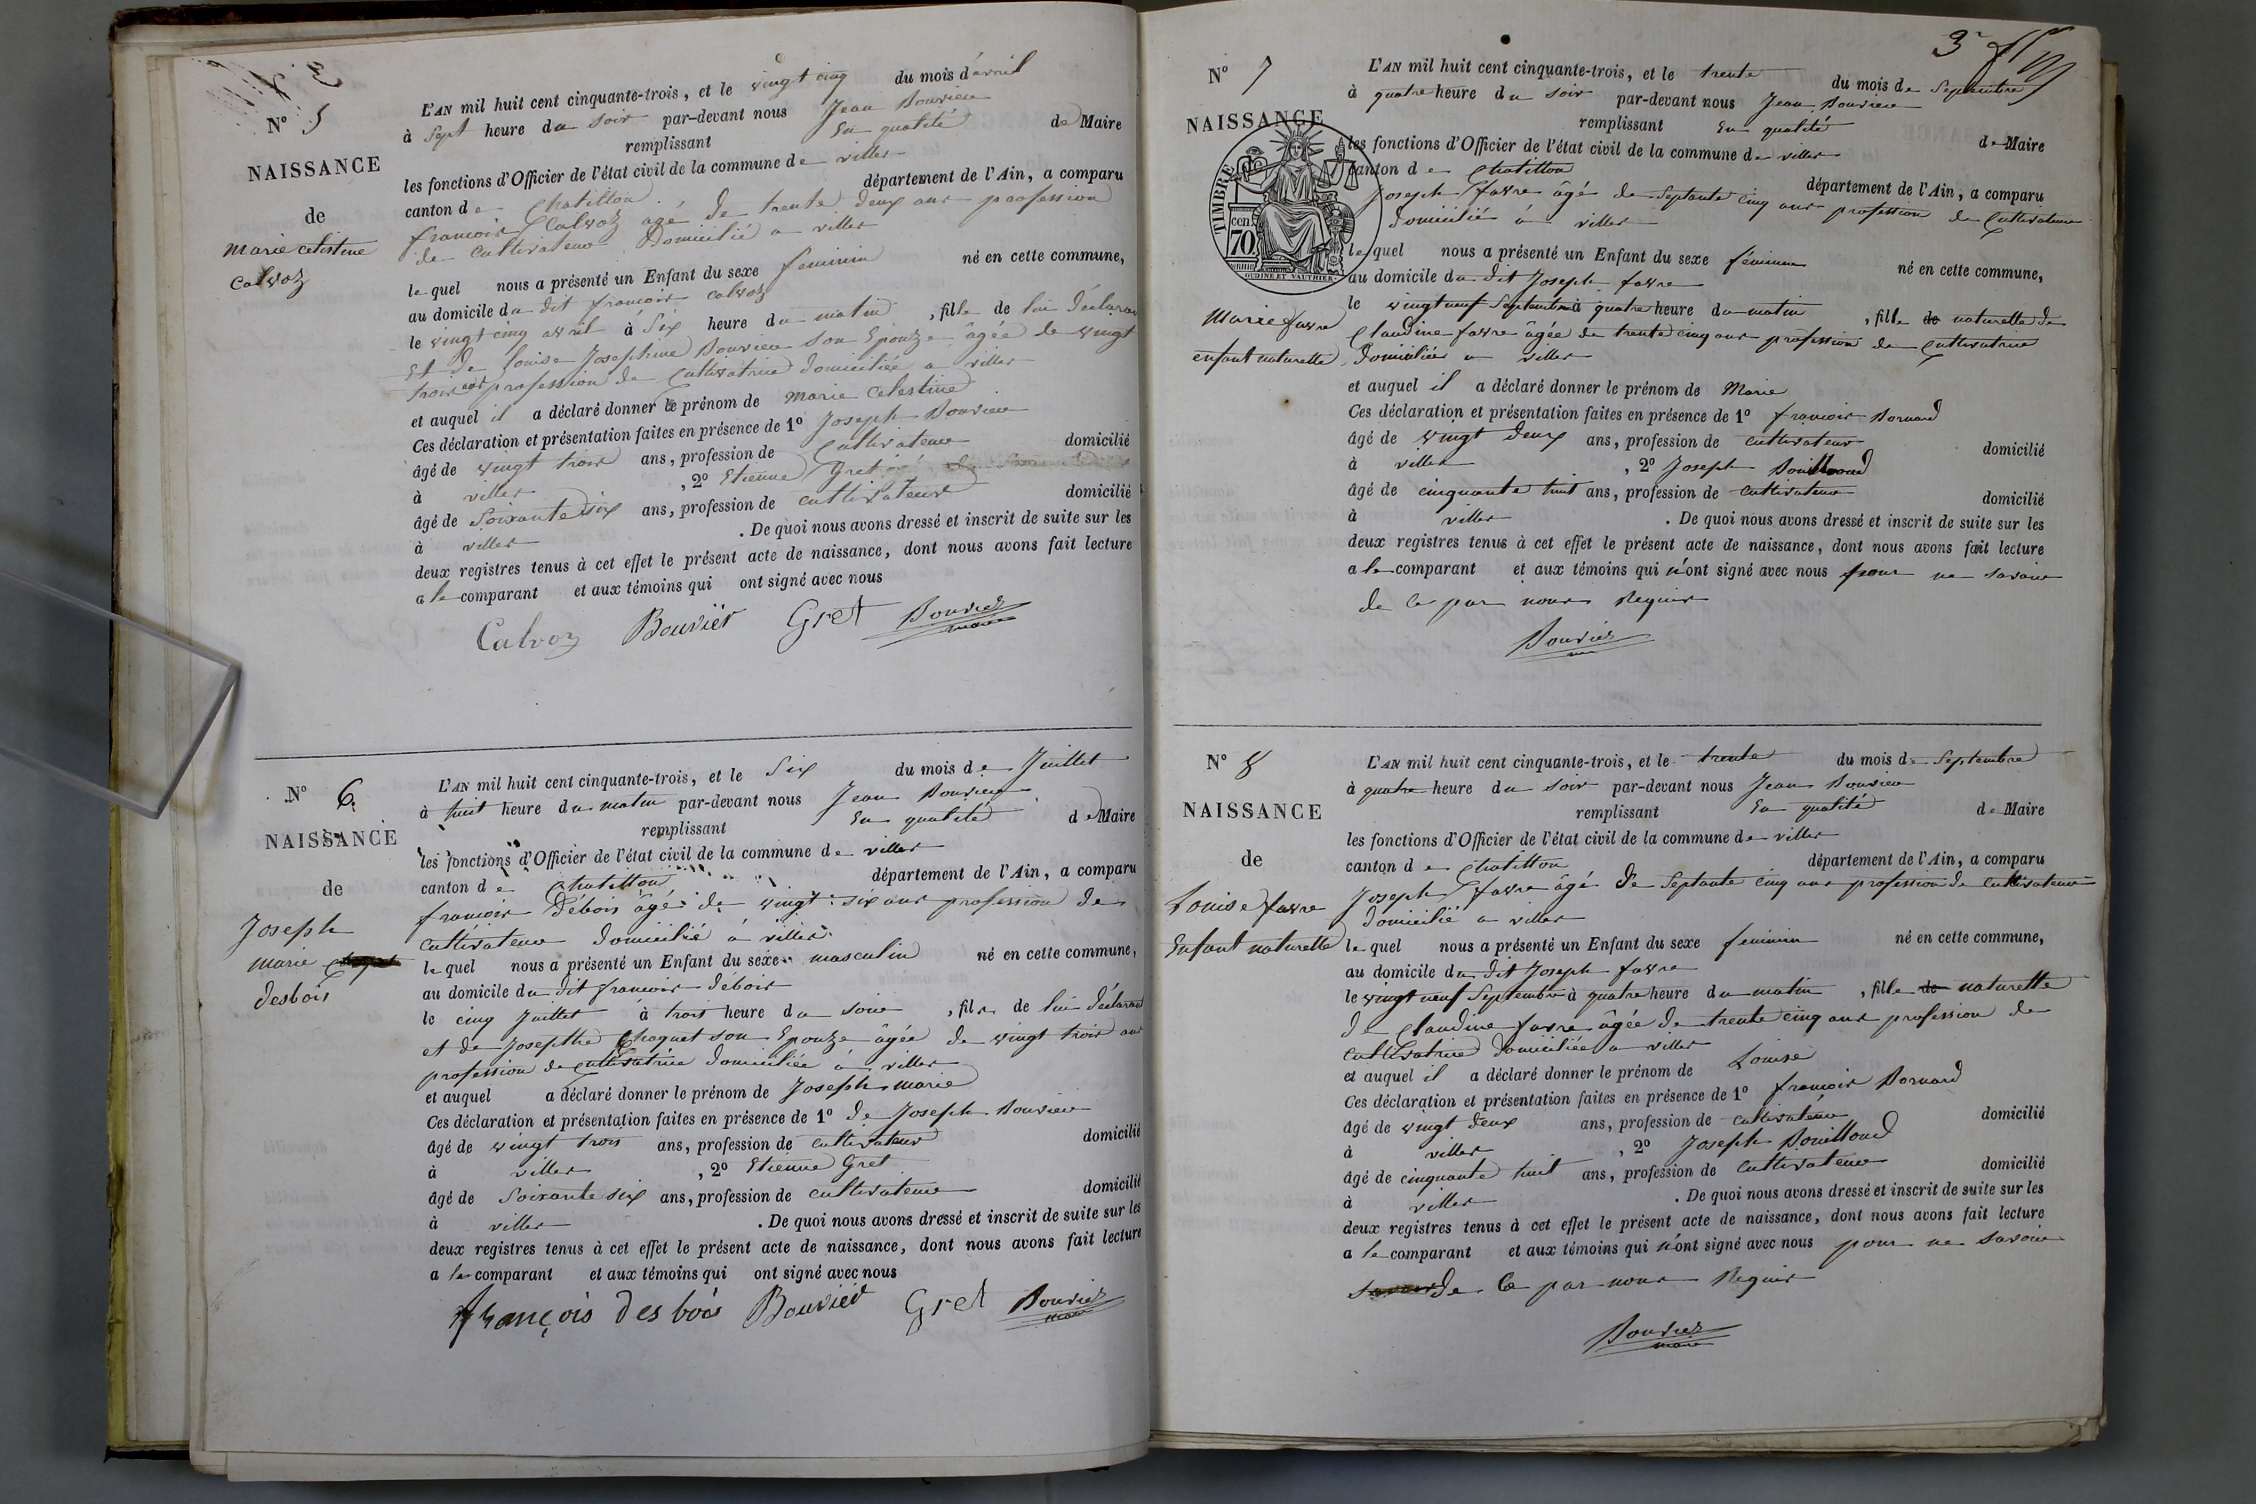 N° 5
NAISSANCE
de
Marie celestine
Calvoz
L'AN mil huit cent cinquante-trois, et le vingt cinq du mois d'avril
à Sept heure du soir par-devant nous Jean Bouvier
remplissant En qualité de Maire
les fonctions d'Officier de l'état civil de la commune de villes
canton de Chatillon département de l'Ain, a comparu
francois Calvoz agé de trente deux ans profession
de Cultivateur Domicilié a villes
lequel nous a présenté un Enfant du sexe feminin né en cette commune,
au domicile du dit francois calvoz
le vingt cinq avril à Six heure du matin, fille de lui déclarant
et de Louise Josephine Bouvier son Epouze âgée de vingt
trois ans profession de Cultivatrice domiciliée a villes
et auquel il a déclaré donner le prénom de Marie Celestine
Ces déclaration et présentation faites en présence de 1° Joseph Bouvier
âgé de vingt trois ans, profession de Cultivateur domicilié
à villes, 2° Etienne Gret
âgé de Soixante six ans, profession de cultivateur domicilié
à villes. De quoi nous avons dressé et inscrit de suite sur les
deux registres tenus à cet effet le présent acte de naissance, dont nous avons fait lecture
a le comparant et aux témoins qui ont signé avec nous
Calvoz Bouvier Gret Bouvier
maire
N° 6
NAISSANCE
de
Joseph
marie
desbois
L'AN mil huit cent cinquante-trois, et le Six du mois de Juillet
à huit heure du matin par-devant nous Jean Bouvier
remplissant En qualité de Maire
les fonctions d'Officier de l'état civil de la commune de villes
canton de Chatillon département de l'Ain, a comparu
francois Débois âgé de vingt six ans profession de
cultivateur domicilié à villes
lequel nous a présenté un Enfant du sexe masculin né en cette commune,
au domicile du dit francois débois
le cinq Juillet à trois heure du soir, fils de lui déclarant
et de Josepthe Choquet son Epouze âgée de vingt trois ans
profession de cultivatrice domiciliée à villes
et auquel a déclaré donner le prénom de Joseph marie
Ces déclaration et présentation faites en présence de 1° de Joseph Bouvier
âgé de vingt trois ans, profession de cultivateur domicilié
à villes, 2° Etienne Gret
âgé de Soixante six ans, profession de cultivateur domicilié
à villes. De quoi nous avons dressé et inscrit de suite sur les
deux registres tenus à cet effet le présent acte de naissance, dont nous avons fait lecture
a le comparant et aux témoins qui ont signé avec nous
françois des bois Bouvier Gret Bouvier
maire
3
N° 7
NAISSANCE
TIMBRE
cen. 70
OUDINE ET VAUTHIER
Marie favre
enfant naturelle
L'AN mil huit cent cinquante-trois, et le trente du mois de Septembre
à quatre heure du soir par-devant nous Jean Bouvier
remplissant En qualité de Maire
les fonctions d'Officier de l'état civil de la commune de villes
canton de Chatillon département de l'Ain, a comparu
Joseph favre âgé de Septante cinq ans profession de Cultivateur
domicilié à villes
lequel nous a présenté un Enfant du sexe féminin né en cette commune,
au domicile du dit Joseph favre
le vingt neuf Septembre à quatre heure du matin, fille de naturelle de
Claudine favre âgée de trente cinq ans profession de Cultivatrice
domiciliée a villes
et auquel il a déclaré donner le prénom de Marie
Ces déclaration et présentation faites en présence de 1° francois Bornard
âgé de vingt deux ans, profession de cultivateur domicilié
à villes, 2° Joseph Bouilloud
âgé de cinquante huit ans, profession de cultivateur domicilié
à villes. De quoi nous avons dressé et inscrit de suite sur les
deux registres tenus à cet effet le présent acte de naissance, dont nous avons fait lecture
a le comparant et aux témoins qui n'ont signé avec nous pour ne savoir
de ce par nous Requis
Bouvier
N° 8
NAISSANCE
de
Louise favre
Enfant naturelle
L'AN mil huit cent cinquante-trois, et le trente du mois de Septembre
à quatre heure du soir par-devant nous Jean Bouvier
remplissant En qualité de Maire
les fonctions d'Officier de l'état civil de la commune de villes
canton de Chatillon département de l'Ain, a comparu
Joseph favre âgé de Septante cinq ans profession de cultivateur
domicilié a villes
lequel nous a présenté un Enfant du sexe feminin né en cette commune,
au domicile du dit Joseph favre
le vingt neuf Septembre à quatre heure du matin, fille de naturelle
de Claudine favre âgée de trente cinq ans profession de
cultivatrice domiciliée a villes
et auquel il a déclaré donner le prénom de Louise
Ces déclaration et présentation faites en présence de 1° francois Bornard
âgé de vingt deux ans, profession de cultivateur domicilié
à villes, 2° Joseph Bouilloud
âgé de cinquante huit ans, profession de cultivateur domicilié
à villes. De quoi nous avons dressé et inscrit de suite sur les
deux registres tenus à cet effet le présent acte de naissance, dont nous avons fait lecture
a le comparant et aux témoins qui n'ont signé avec nous pour ne savoir
savoir de ce par nous Requis
Bouvier
maire